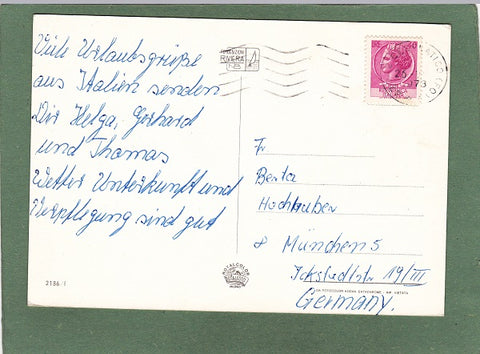 Viele Urlaubsgrüße
aus Italien senden
Dir Helga, Gerhard
und Thomas
Wetter Unterkunft und
Verpflegung sind gut
RIVIERA
40
Fr
Berta
Hochhuber
8 München 5
Ickstadtstr 19/III
Germany.
ROYALCOLOR
2136/